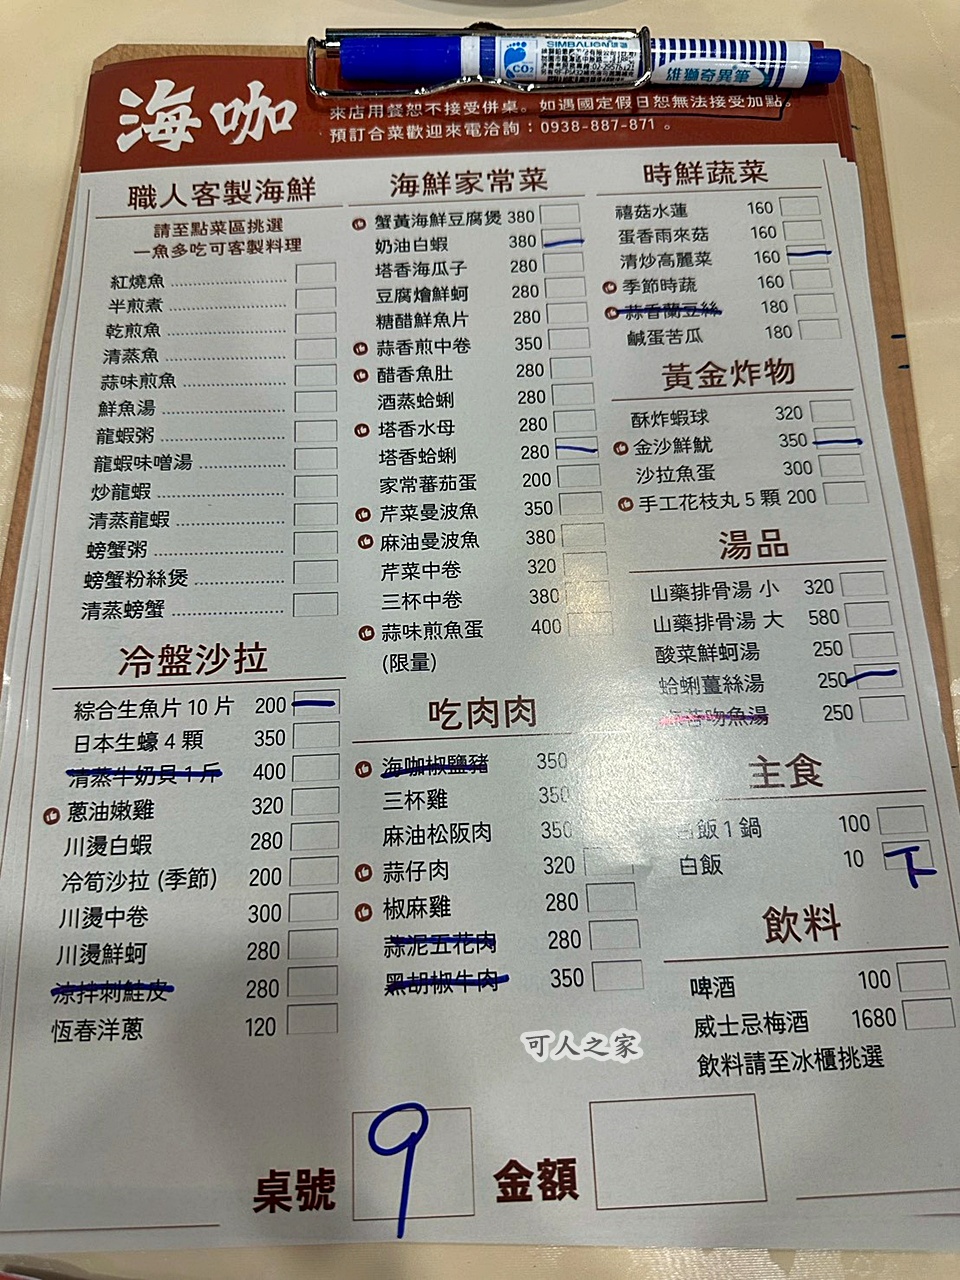 SIMBALION 雄獅
CO2
雄獅奇異筆
海咖
來店用餐恕不接受併桌。如遇國定假日恕無法接受加點。
預訂合菜歡迎來電洽詢：0938-887-871。
職人客製海鮮
請至點菜區挑選
一魚多吃可客製料理
紅燒魚
半煎煮
乾煎魚
清蒸魚
蒜味煎魚
鮮魚湯
龍蝦粥
龍蝦味噌湯
炒龍蝦
清蒸龍蝦
螃蟹粥
螃蟹粉絲煲
清蒸螃蟹
冷盤沙拉
綜合生魚片 10 片 200
日本生蠔 4 顆 350
清蒸牛奶貝 1 斤 400
蔥油嫩雞 320
川燙白蝦 280
冷筍沙拉 (季節) 200
川燙中卷 300
川燙鮮蚵 280
涼拌刺鮭皮 280
恆春洋蔥 120
海鮮家常菜
蟹黃海鮮豆腐煲 380
奶油白蝦 380
塔香海瓜子 280
豆腐燴鮮蚵 280
糖醋鮮魚片 280
蒜香煎中卷 350
醋香魚肚 280
酒蒸蛤蜊 280
塔香水母 280
塔香蛤蜊 280
家常蕃茄蛋 200
芹菜曼波魚 350
麻油曼波魚 380
芹菜中卷 320
三杯中卷 380
蒜味煎魚蛋 400
(限量)
吃肉肉
海咖椒鹽豬 350
三杯雞 350
麻油松阪肉 350
蒜仔肉 320
椒麻雞 280
蒜泥五花肉 280
黑胡椒牛肉 350
時鮮蔬菜
禧菇水蓮 160
蛋香雨來菇 160
清炒高麗菜 160
季節時蔬 160
蒜香蘭豆絲 180
鹹蛋苦瓜 180
黃金炸物
酥炸蝦球 320
金沙鮮魷 350
沙拉魚蛋 300
手工花枝丸 5 顆 200
湯品
山藥排骨湯 小 320
山藥排骨湯 大 580
酸菜鮮蚵湯 250
蛤蜊薑絲湯 250
吻魚湯 250
主食
白飯 1 鍋 100
白飯 10
飲料
啤酒 100
威士忌梅酒 1680
飲料請至冰櫃挑選
可人之家
桌號 9 金額